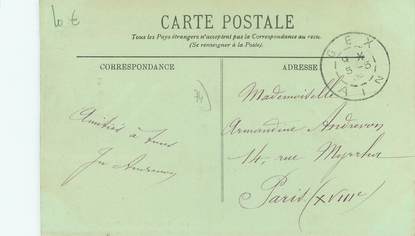 10 €
CARTE POSTALE
Tous les Pays étrangers n'acceptent pas la Correspondance au recto.
(Se renseigner à la Poste).
CORRESPONDANCE
ADRESSE
GEX
AIN
Mademoiselle
Armandine Andrevon
14, rue Myrrha
Paris (XVIIIe)
Amitiés à tous